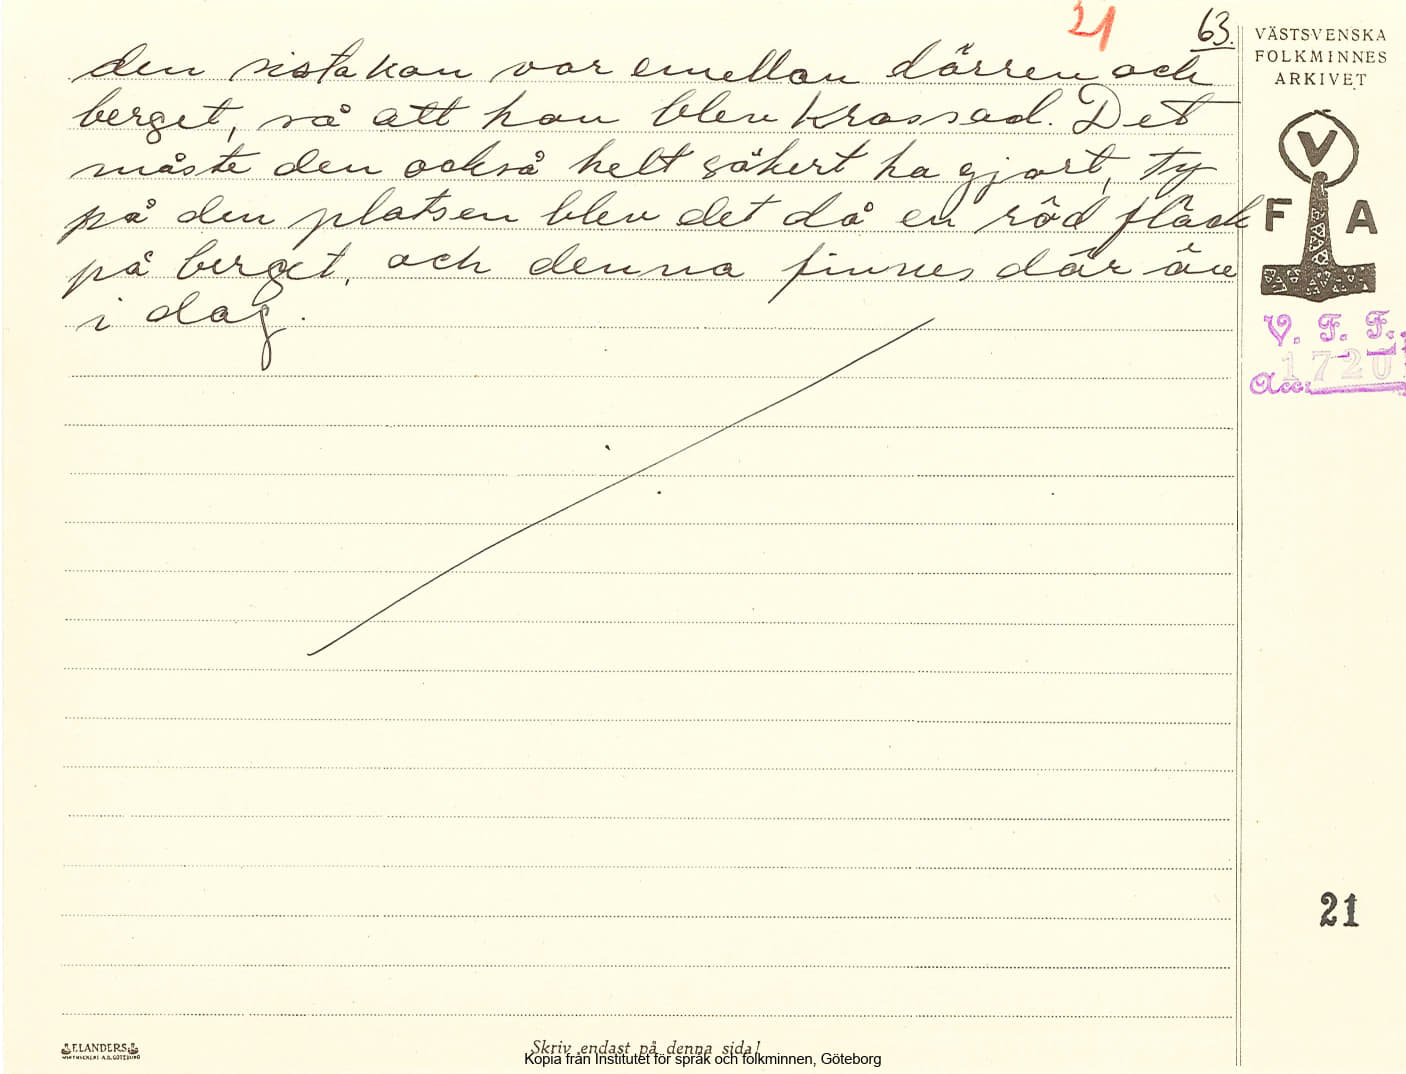 21
63.
den sista kon var emellan dörren och
berget, så att hon blev krossad. Det
måste den också helt säkert ha gjort, ty
på den platsen blev det då en röd fläck
på berget, och denna finnes där än
i dag.
VÄSTSVENSKA
FOLKMINNES
ARKIVET
V
F A
V. F. F.
Acc. 1720
21
F. LANDERS
Skriv endast på denna sida!
Kopia från Institutet för språk och folkminnen, Göteborg